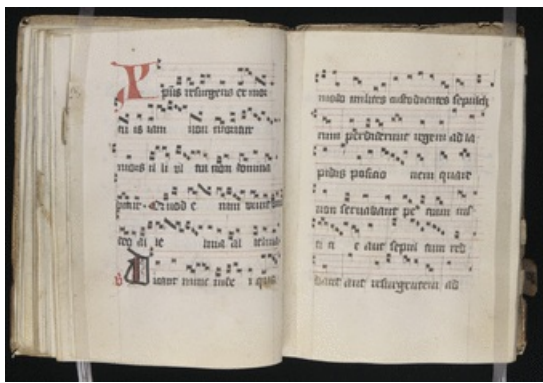 Xp̄us resurgens ex mor
tu is iam non moritur
mors il li vl tra non domina
bitur Quod e nim viuit
deo al le luia al leluia
Dicant nunc iude i quo
modo milites custodientes sepulch
rum perdiderunt regem ad la
pidis positio nem quare
non seruabant pe tram ius
ti ci e aut sepul tum red
dant aut resurgentem ad